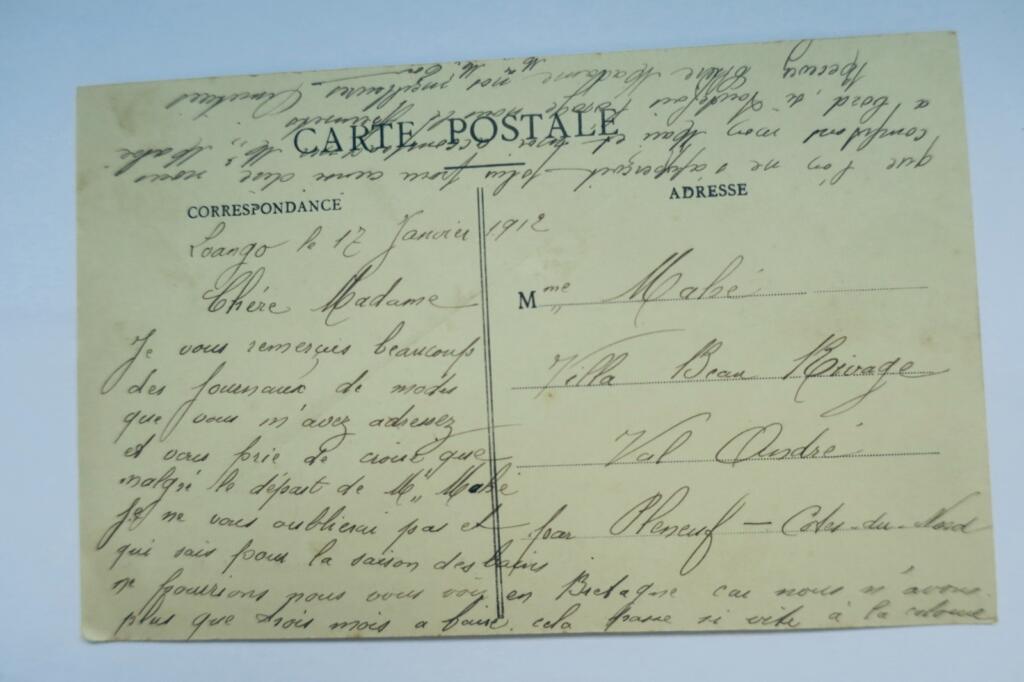 CARTE POSTALE
CORRESPONDANCE
ADRESSE
Loango le 17 Janvier 1912
Chère Madame
Je vous remerçies beaucoup
des journaux de modes
que vous m'avez adressez
et vous prie de croire que
malgré le départ de Mr Mahé
je ne vous oublierai pas et
qui sais pour la saison des bains
ne pourrions nous vous voir en Bretagne car nous n'avons
plus que trois mois a faire. cela passe si vite à la colonie
que l'on ne s'aperçoit plus
comptant mon Mari et moi
à bord, à
Chère Madame nos meilleures Amitiés
Mme Mahé
Villa Beau Rivage
Val André
par Pleneuf — Cotes-du-Nord